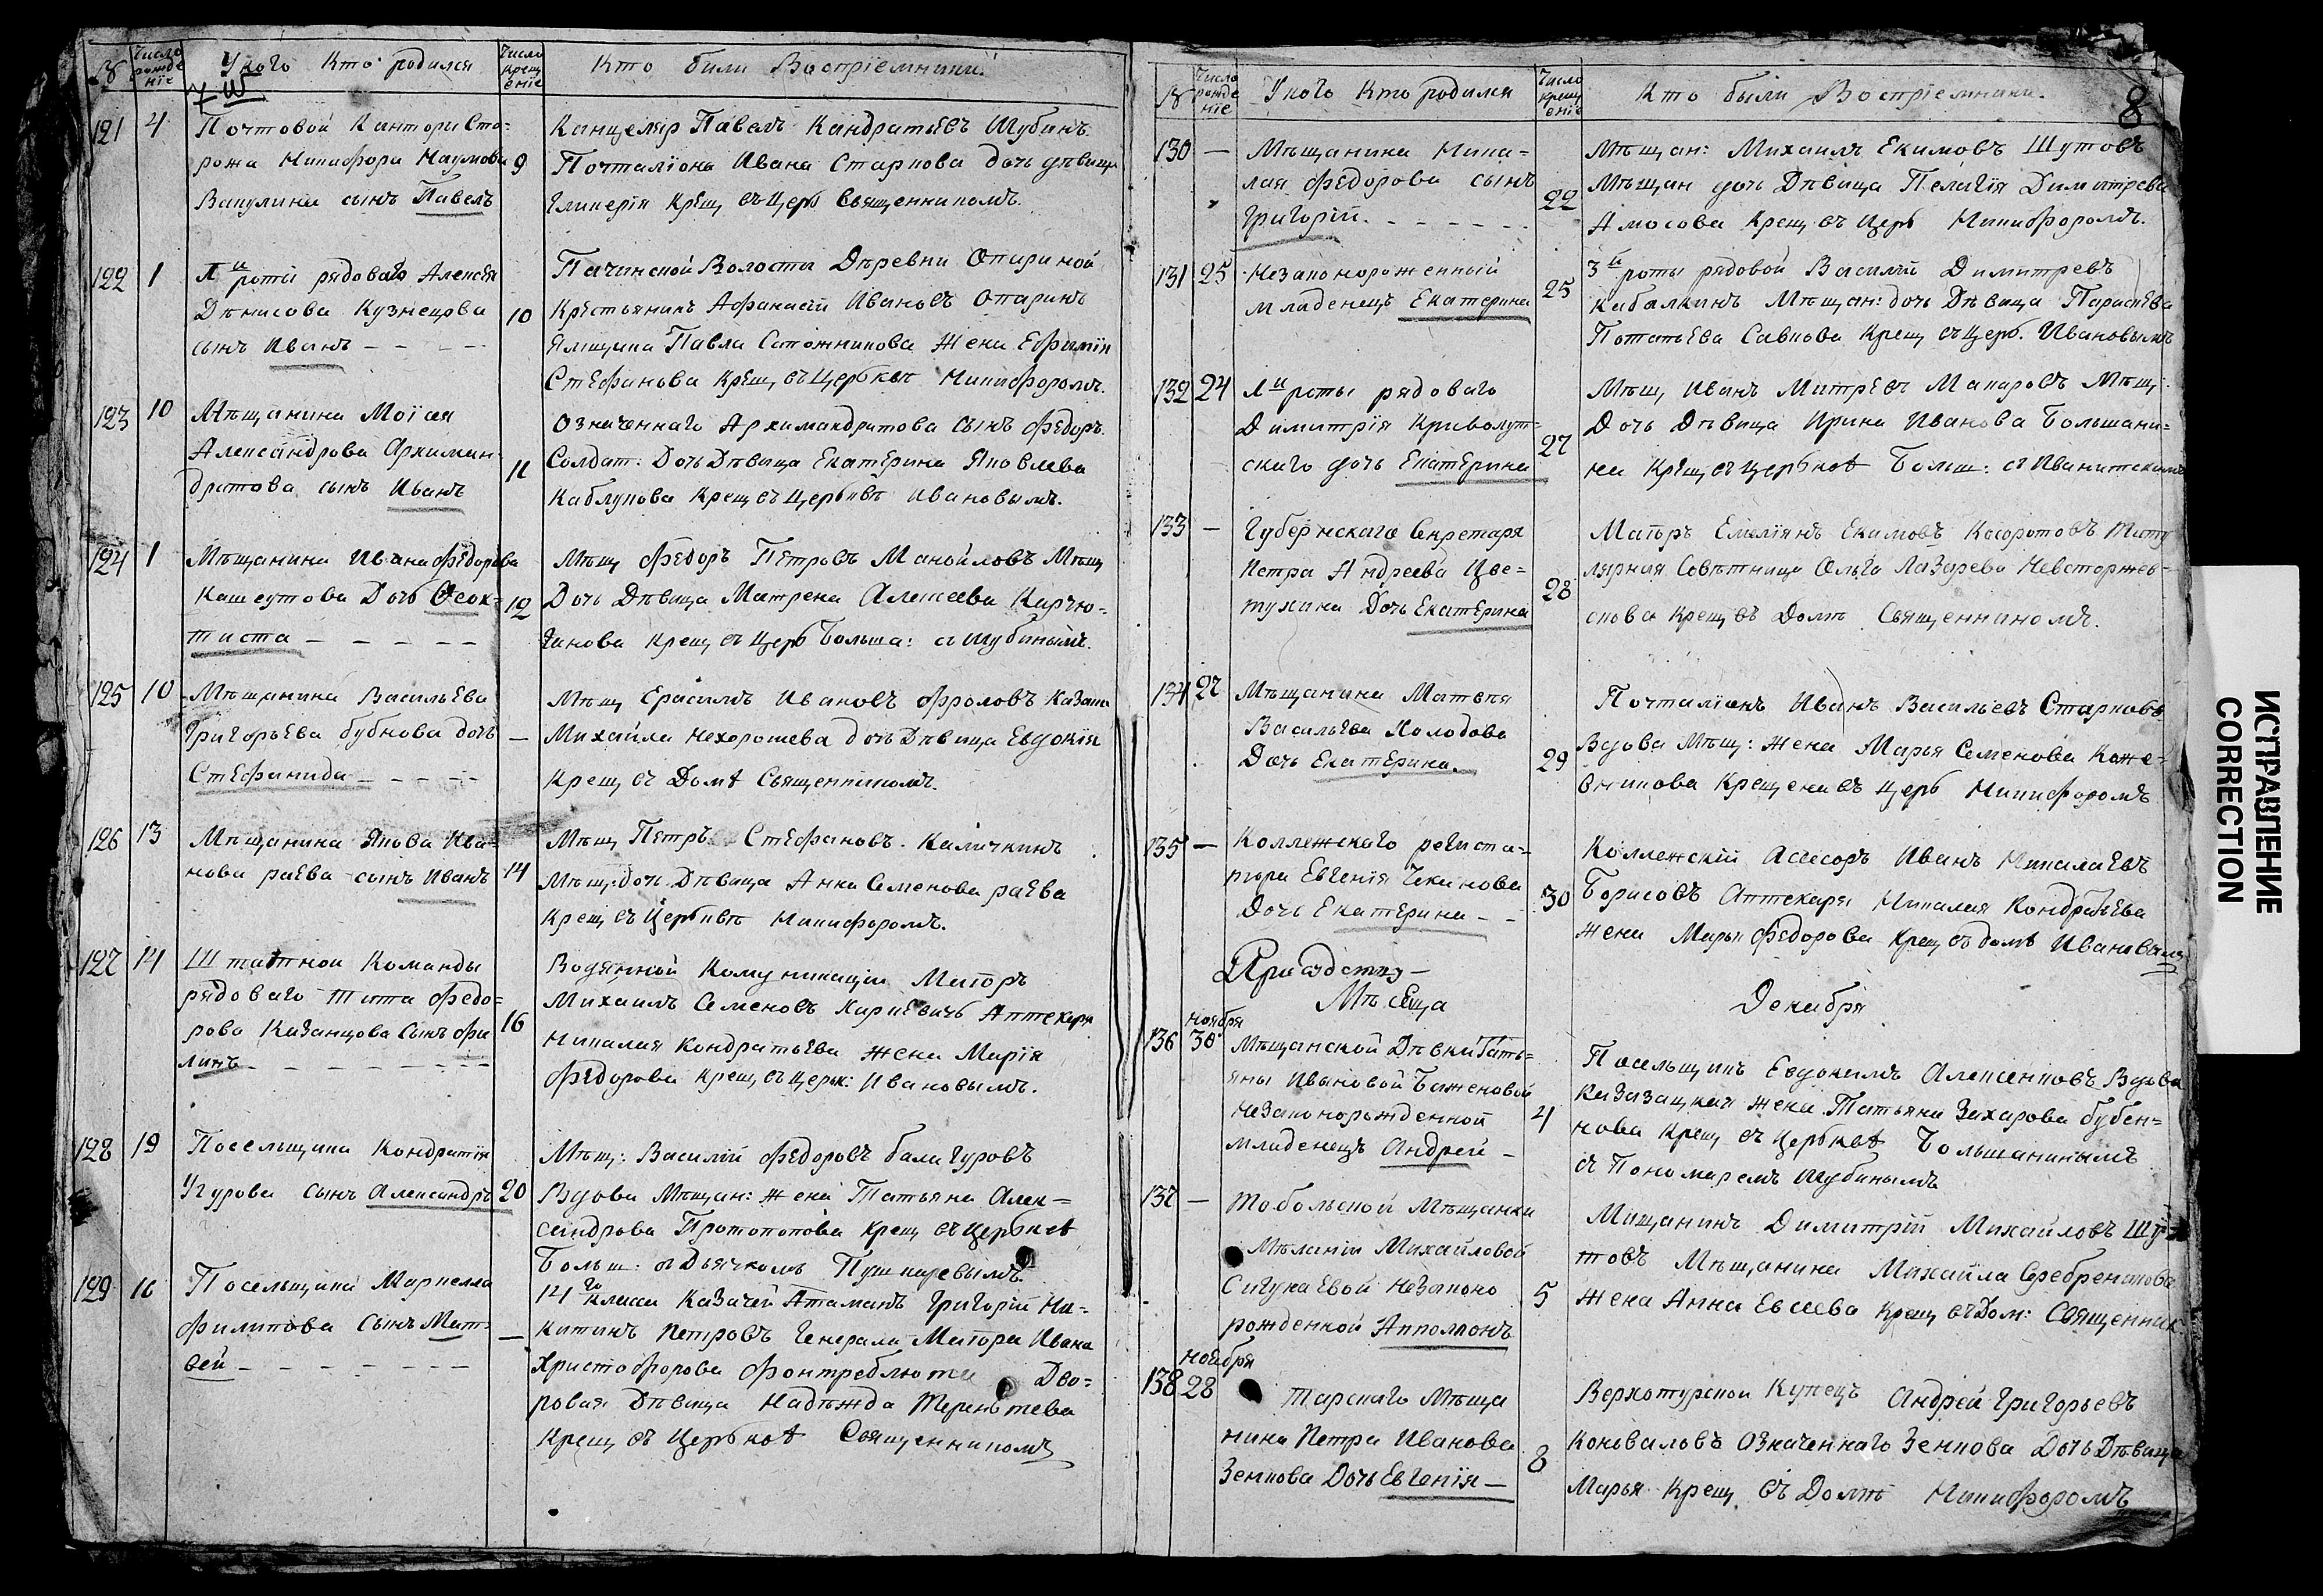 № Число рожденіе У кого кто родился Число крещеніе Кто были Воспріемники.
121 4
Почтовой Канторы Сто=
рожа Никифора Наумова
Вакулина сынъ Павелъ
9
Канцеляр Павелъ Кандратьевъ Шубинъ
Почталіона Ивана Старкова дочь дѣвица
Гликерія Крещ въ Церк Священникомъ.
122 1
роты рядоваго Алексѣя
Денисова Кузнецова
сынъ Иванъ
10
Волости Деревни Опариной
Крестьянинъ Афанасій Ивановъ Опаринъ
Ямщика Павла Сапожникова Жена Ефимія
Стефанова Крещ въ Церквѣ Никифоромъ.
123 10
Мѣщанина Моісея
Александрова Архиман
дритова сынъ Иванъ
11
Означеннаго Архимандритова Сынъ Федоръ.
Солдат: Дочь Дѣвица Екатерина Яковлева
Каблукова Крещ въ Церквѣ Ивановымъ.
124 1
Мѣщанина Ивана Федорова
Кашеутова Дочь Феок=
тиста
12
Мѣщ Федоръ Петровъ Манойловъ Мѣщ
Дочь Дѣвица Матрена Алексеева Карчю=
ганова Крещ въ Церк Больша: съ Шубинымъ.
125 10
Мѣщанина Васильева
Григорьева Бубнова дочь
Стефанида
—
Мѣщ Ерасимъ Ивановъ Фроловъ Казака
Михайла Нехорошева дочь Дѣвица Евдокія
Крещ въ Домѣ Священникомъ.
126 13
Мѣщанина Якова Ива=
нова Раева сынъ Иванъ
14
Мѣщ Петръ Стефановъ Каличкинъ
Мѣщ: дочь Дѣвица Анна Семенова Раева
Крещ въ Церквѣ Никифоромъ.
127 14
Штатной Команды
рядоваго Тита Федо=
рова Казанцова Сынъ Фи
липъ
16
Водянной Комуникаціи Маіоръ
Михаилъ Семеновъ Карпевичь Аптекаря
Николая Кондратьева Жена Марія
Федорова Крещ въ Церьк: Ивановымъ.
128 19
Посельщика Кондратія
Угурова Сынъ Александръ
20
Мѣщ: Василій Федоровъ Балагуровъ
Вдова Мѣщан: Жена Татьяна Алек=
сандрова Протопопова Крещ въ Церквѣ
Больш: съ Дьячкомъ Пушкаревымъ
129 16
Посельщика Маркелла
Филипова Сынъ Мат=
вей
—
14 го класса Казачей Атаманъ Григорій Ни=
китинъ Петровъ Генерала-Маіора Ивана
Христофорова Фонтреблюта Дво=
ровая Дѣвица Надежда Терентева
Крещ въ Церквѣ Священникомъ
8
№ Число рожденіе У кого Кто родился Число крещеніе Кто были Воспріемники.
130 —
Мѣщанина Нико=
лая Федорова сынъ
Григорій.
22
Мѣщан: Михаилъ Екимовъ Шутовъ
Мѣщан дочь Дѣвица Пелагія Димитрева
Амосова Крещ въ Церк Никифоромъ.
131 25
Незаконорожѣнный
младенецъ Екатерина
25
3й роты рядовой Василій Димитревъ
Кабалкинъ Мѣщан: дочь Дѣвица Парасева
Потапьева Савкова Крещ въ Церк. Ивановымъ
132 24
роты рядоваго
Димитрія Криволут=
скаго дочь Екатерина
27
Мѣщ, Иванъ Митревъ Макаровъ Мѣщ
Дочь Дѣвица Ирина Иванова Большани=
на Крещ въ Церквѣ Больш:
133 —
Губернскаго Секретаря
Петра Андреева Цве=
тухина Дочь Екатерина
28
Маіоръ Емеліянъ Екимовъ Косоротовъ Титу
лярная Совѣтница Ольга Лазарева
Крещ въ Домѣ Священникомъ.
134 27
Мѣщанина Матвѣя
Васильева Холодова
Дочь Екатерина.
29
Почталіонъ Иванъ Васильевъ Старковъ
Вдова Мѣщ: Жена Марья Семенова Коже=
вникова Крещена въ Церк Никифоромъ
135 —
Коллежскаго регистра=
тора Евгенія Чекинова
Дочь Екатерина
30
Коллежскій Асесоръ Иванъ Николаевъ
Борисовъ Аптекаря Николая Кондратьева
Жена Марья Федорова Крещ въ домѣ Ивановымъ
Мѣсеца Декабря
136 ноября 30
Мѣщанской Дѣвки Тать=
яны Ивановой Баженовой
Незаконорожденной
младенецъ Андрей
4
Посельщикъ Евдокимъ Алексенковъ Вдова
Казацкая жена Татьяна Захарова Бубен=
нова Крещ въ Церквѣ Большанинымъ
съ Пономаремъ Шубинымъ
137 —
Тобольской Мѣщанки
Меланіи Михайловой
Сигунаевой Незаконо
рожденной Апполонъ
5
Мищанинъ Димитрій Михайловъ Шу=
товъ Мѣщанина Михайла Серебреникова
Жена Анна Евсеева Крещ въ Дом: Священник
138 ноября 28
Тарскаго Мѣща
нина Петра Иванова
Земкова Дочь Евгенія
8
Верхотурской Купецъ Андрей Григорьевъ
Коноваловъ Означеннаго Земкова Дочь Дѣвица
Марья Крещ въ Домѣ Никифоромъ
ИСПРАВЛЕНИЕ
CORRECTION